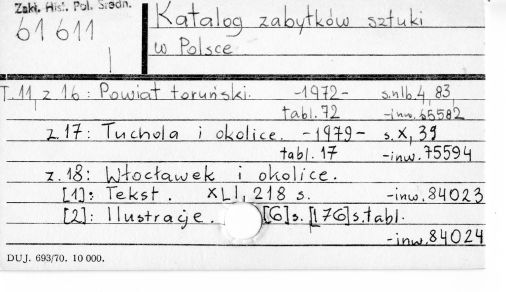 Zakł. Hist. Pol. Średn.
61 611
Katalog zabytków sztuki
w Polsce
T. 11, z 16: Powiat toruński. -1972- s.nlb. 4, 83
tabl. 72 -inw. 65582
z. 17: Tuchola i okolice. -1979- s. X, 39
tabl. 17 -inw. 75594
z. 18: Włocławek i okolice.
[1]: Tekst. XLI, 218 s. -inw. 84023
[2]: Ilustracje. [6]s. [176]s.tabl.
-inw. 84024
DUJ. 693/70. 10 000.